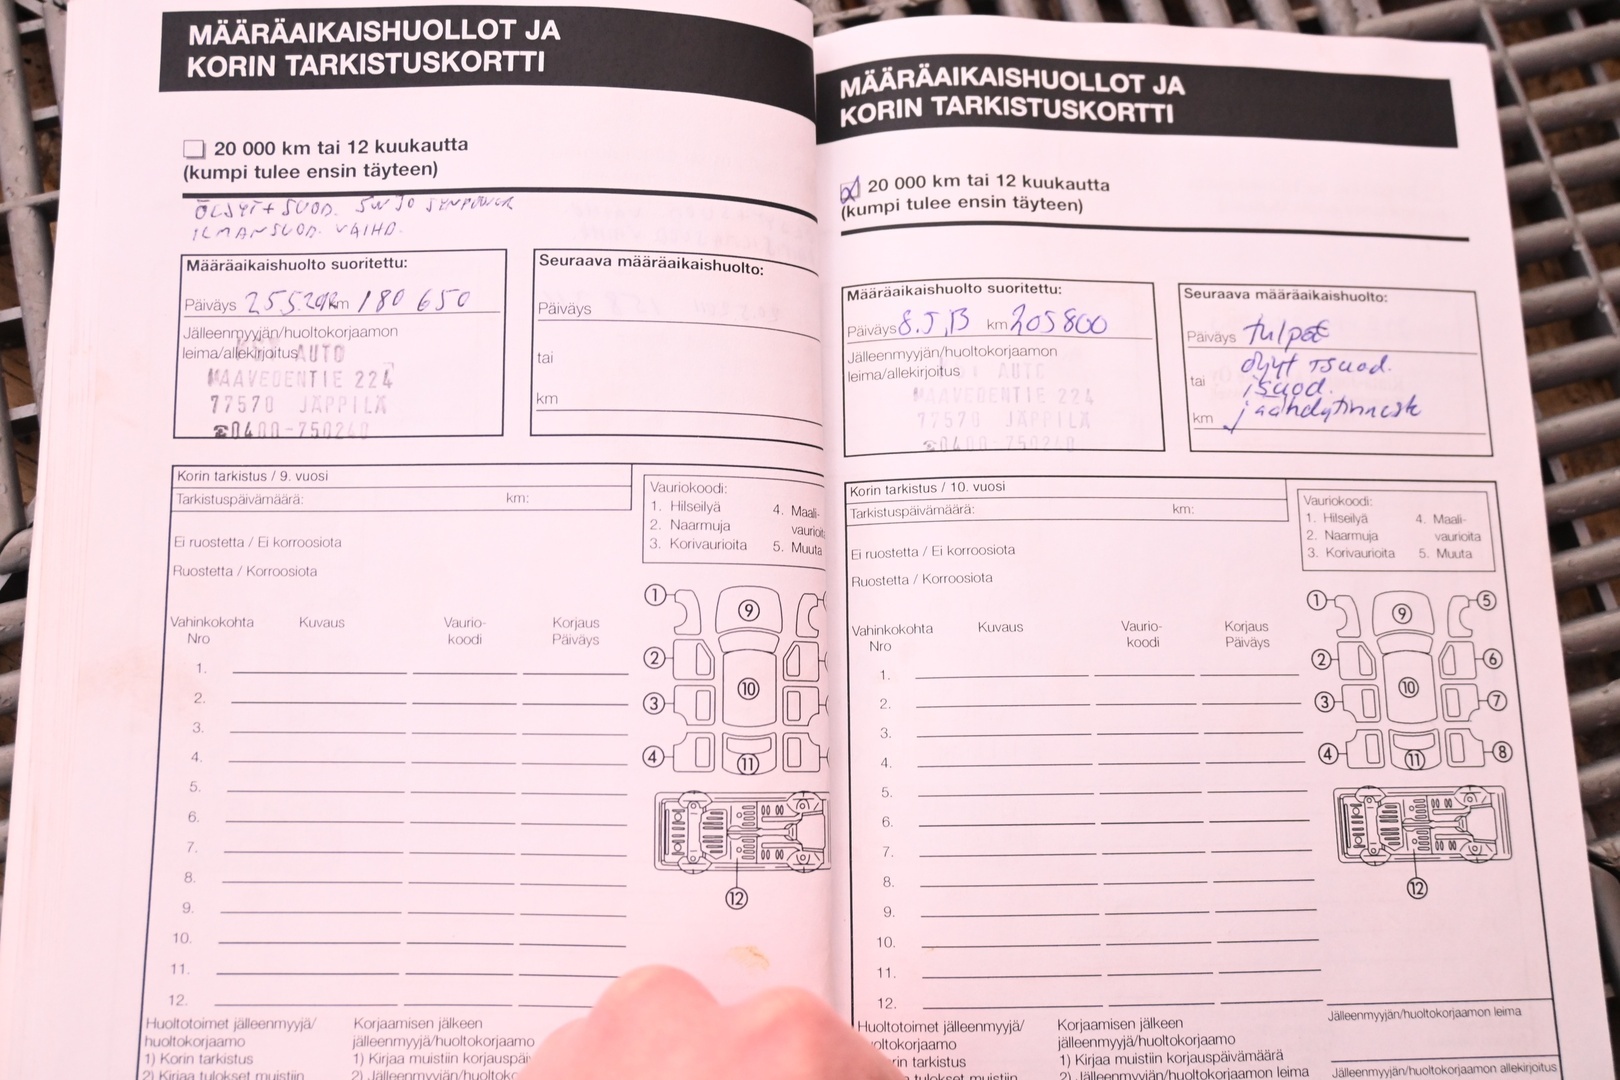 MÄÄRÄAIKAISHUOLLOT JA
KORIN TARKISTUSKORTTI
20 000 km tai 12 kuukautta
(kumpi tulee ensin täyteen)
ÖLJYT + SUOD. 5W30 SYNPOWER
ILMANSUOD. VAIHD.
Määräaikaishuolto suoritettu:
Päiväys 25.5.2012 km 180 650
Jälleenmyyjän/huoltokorjaamon
leima/allekirjoitus
AUTO
MAAVEDENTIE 224
77570 JÄPPILÄ
☎0400-750240
Seuraava määräaikaishuolto:
Päiväys
tai
km
Korin tarkistus / 9. vuosi
Tarkistuspäivämäärä: km:
Ei ruostetta / Ei korroosiota
Ruostetta / Korroosiota
Vauriokoodi:
1. Hilseilyä 4. Maali-
2. Naarmuja vaurioita
3. Korivaurioita 5. Muuta
Vahinkokohta Kuvaus Vaurio- Korjaus
Nro koodi Päiväys
1.
2.
3.
4.
5.
6.
7.
8.
9.
10.
11.
12.
1
2
3
4
9
10
11
12
Huoltotoimet jälleenmyyjä/
huoltokorjaamo
1) Korin tarkistus
2) Kirjaa tulokset muistiin
Korjaamisen jälkeen
jälleenmyyjä/huoltokorjaamo
1) Kirjaa muistiin korjauspäi
2) Jälleenmyyjän/huoltoko
MÄÄRÄAIKAISHUOLLOT JA
KORIN TARKISTUSKORTTI
20 000 km tai 12 kuukautta
(kumpi tulee ensin täyteen)
Määräaikaishuolto suoritettu:
Päiväys 8.5.13 km 205800
Jälleenmyyjän/huoltokorjaamon
leima/allekirjoitus
AUTO
MAAVEDENTIE 224
77570 JÄPPILÄ
☎0400-750240
Seuraava määräaikaishuolto:
Päiväys tulpat
öljyt + suod.
tai isuod.
km jäähdytinneste
Korin tarkistus / 10. vuosi
Tarkistuspäivämäärä: km:
Ei ruostetta / Ei korroosiota
Ruostetta / Korroosiota
Vauriokoodi:
1. Hilseilyä 4. Maali-
2. Naarmuja vaurioita
3. Korivaurioita 5. Muuta
Vahinkokohta Kuvaus Vaurio- Korjaus
Nro koodi Päiväys
1.
2.
3.
4.
5.
6.
7.
8.
9.
10.
11.
12.
1 9 5
2 6
3 10 7
4 11 8
12
Huoltotoimet jälleenmyyjä/
oltokorjaamo
rin tarkistus
tulokset muistiin
Korjaamisen jälkeen
jälleenmyyjä/huoltokorjaamo
1) Kirjaa muistiin korjauspäivämäärä
2) Jälleenmyyjän/huoltokorjaamon leima
Jälleenmyyjän/huoltokorjaamon leima
Jälleenmyyjän/huoltokorjaamon allekirjoitus